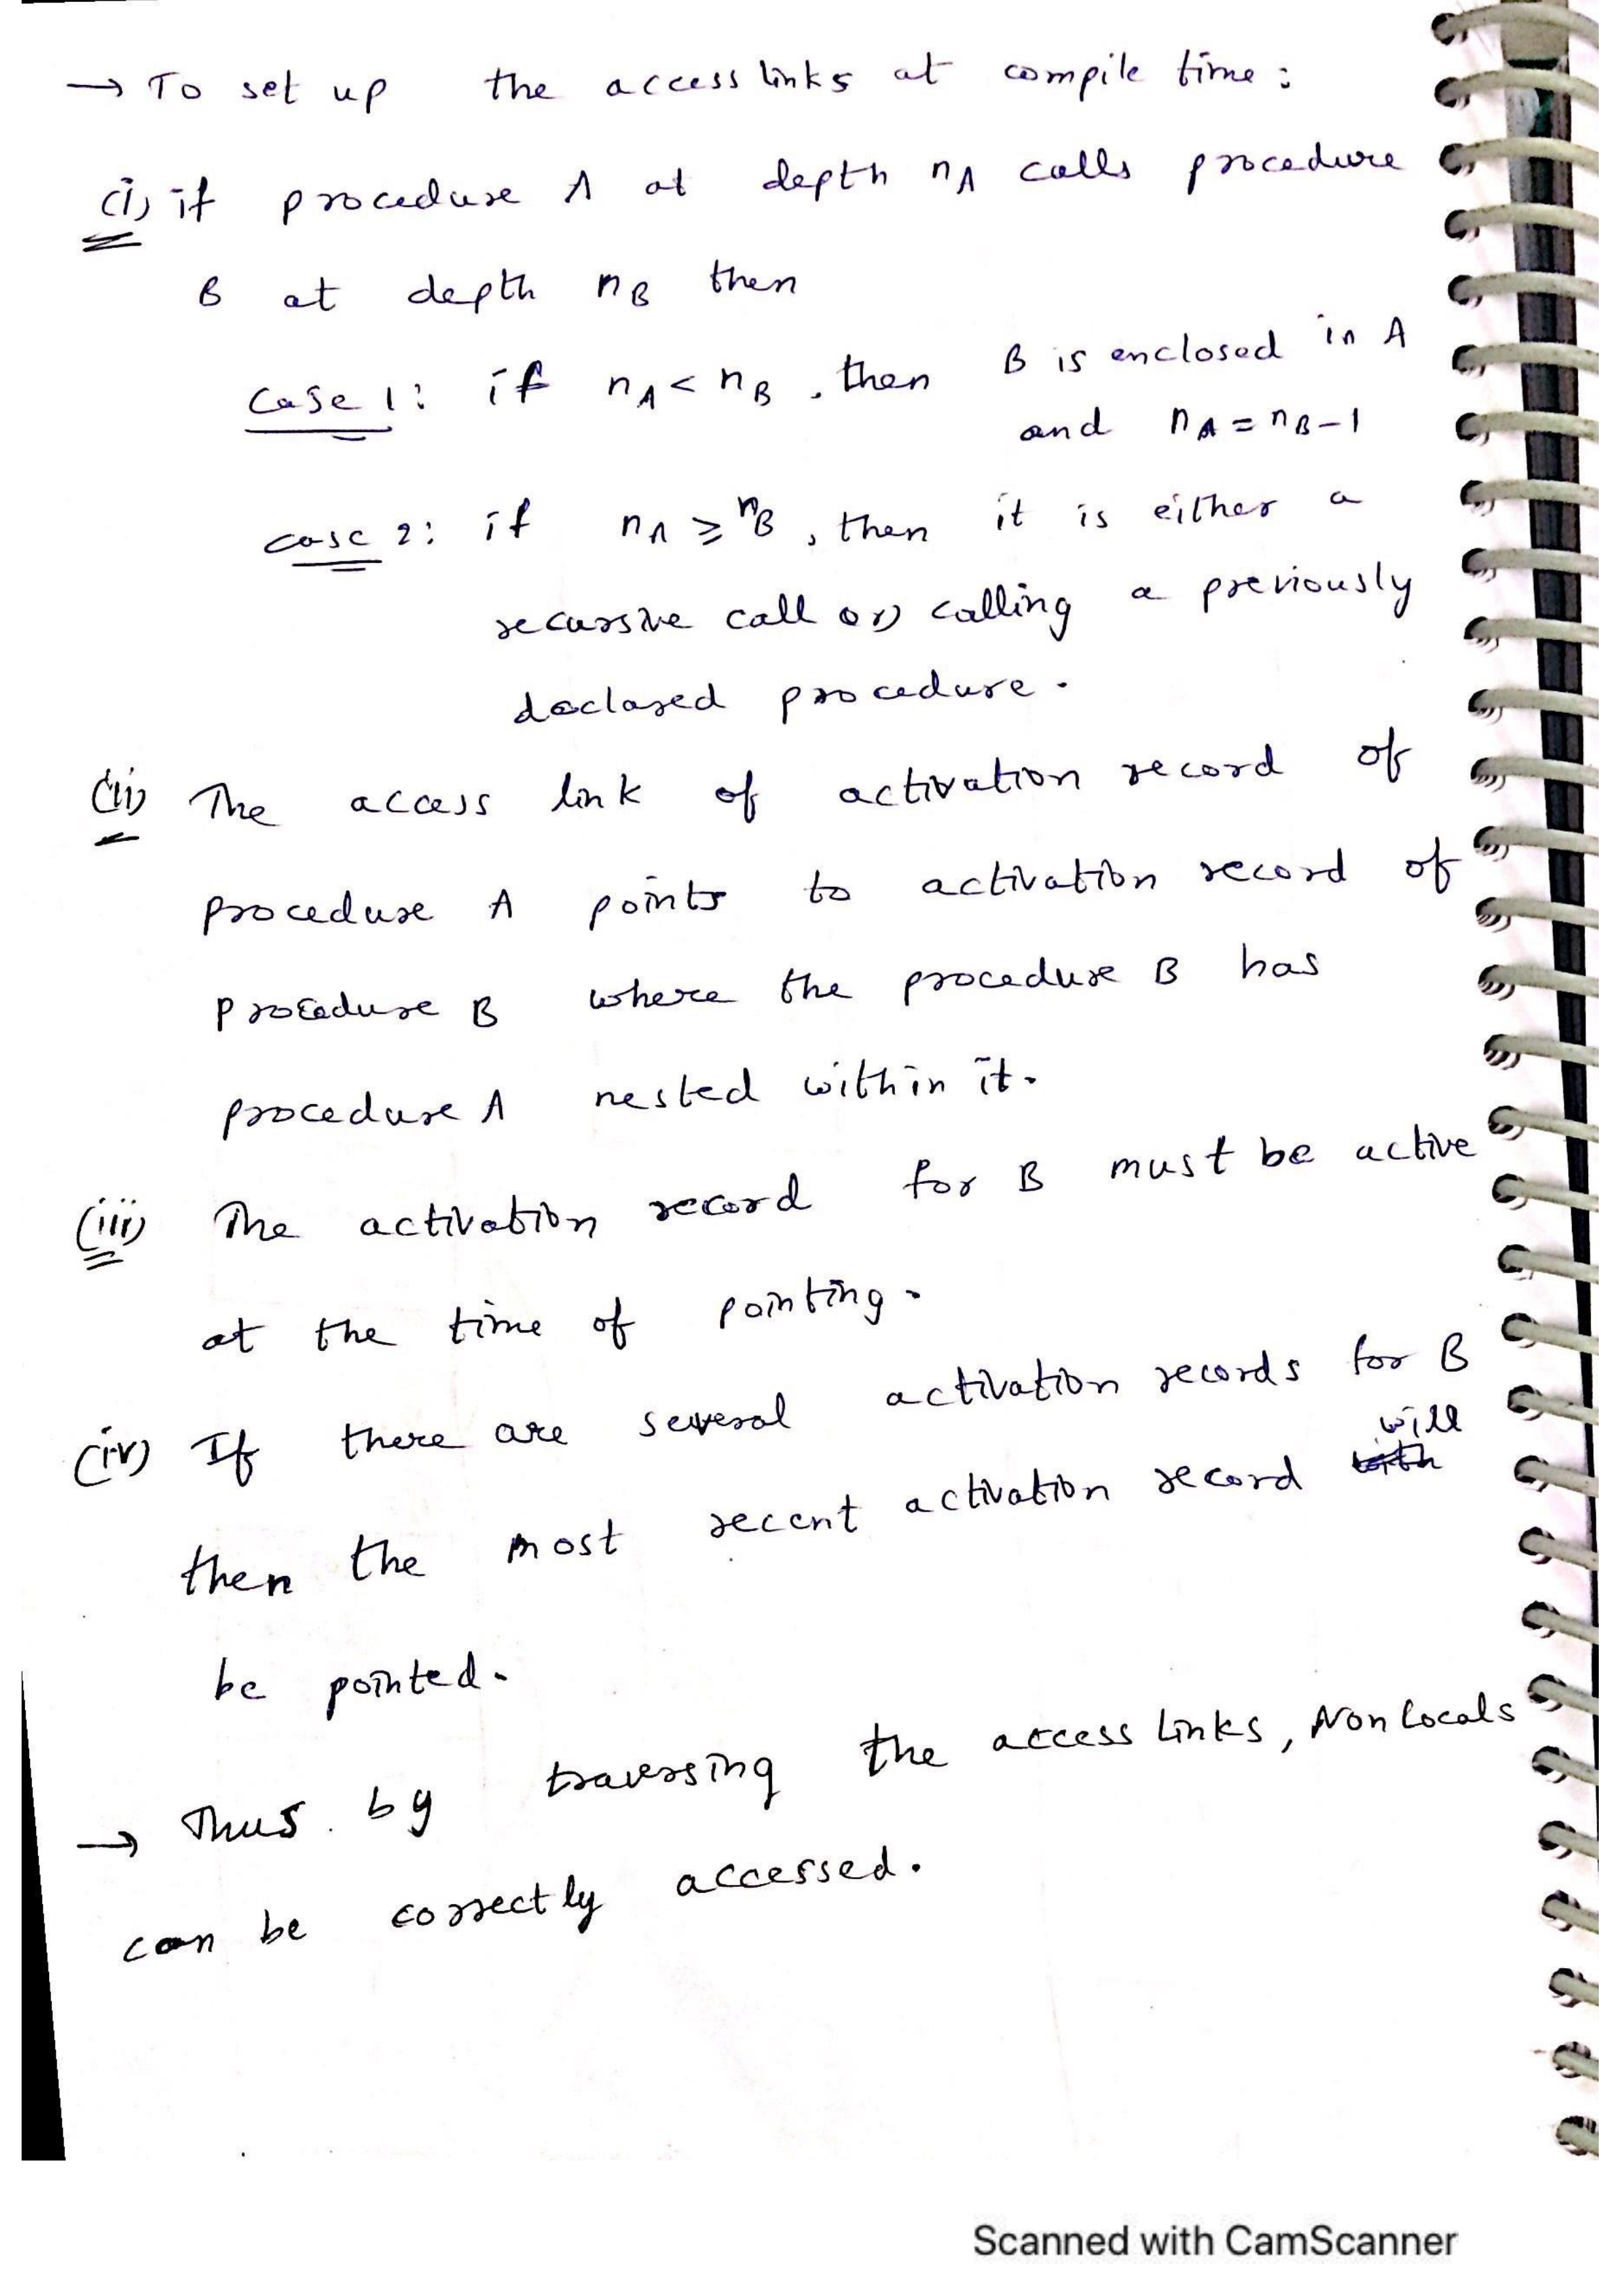 → To set up the access links at compile time:
(i) if procedure A at depth nA calls procedure
B at depth nB then
Case 1: if nA < nB, then B is enclosed in A
and nA = nB-1
case 2: if nA ≥ nB, then it is either a
recursive call or) calling a previously
declared procedure.
(ii) The access link of activation record of
procedure A points to activation record of
procedure B where the procedure B has
procedure A nested within it.
(iii) The activation record for B must be active
at the time of pointing.
(iv) If there are several activation records for B
then the most recent activation record will
be pointed.
→ Thus by traversing the access links, Non locals
can be correctly accessed.
Scanned with CamScanner